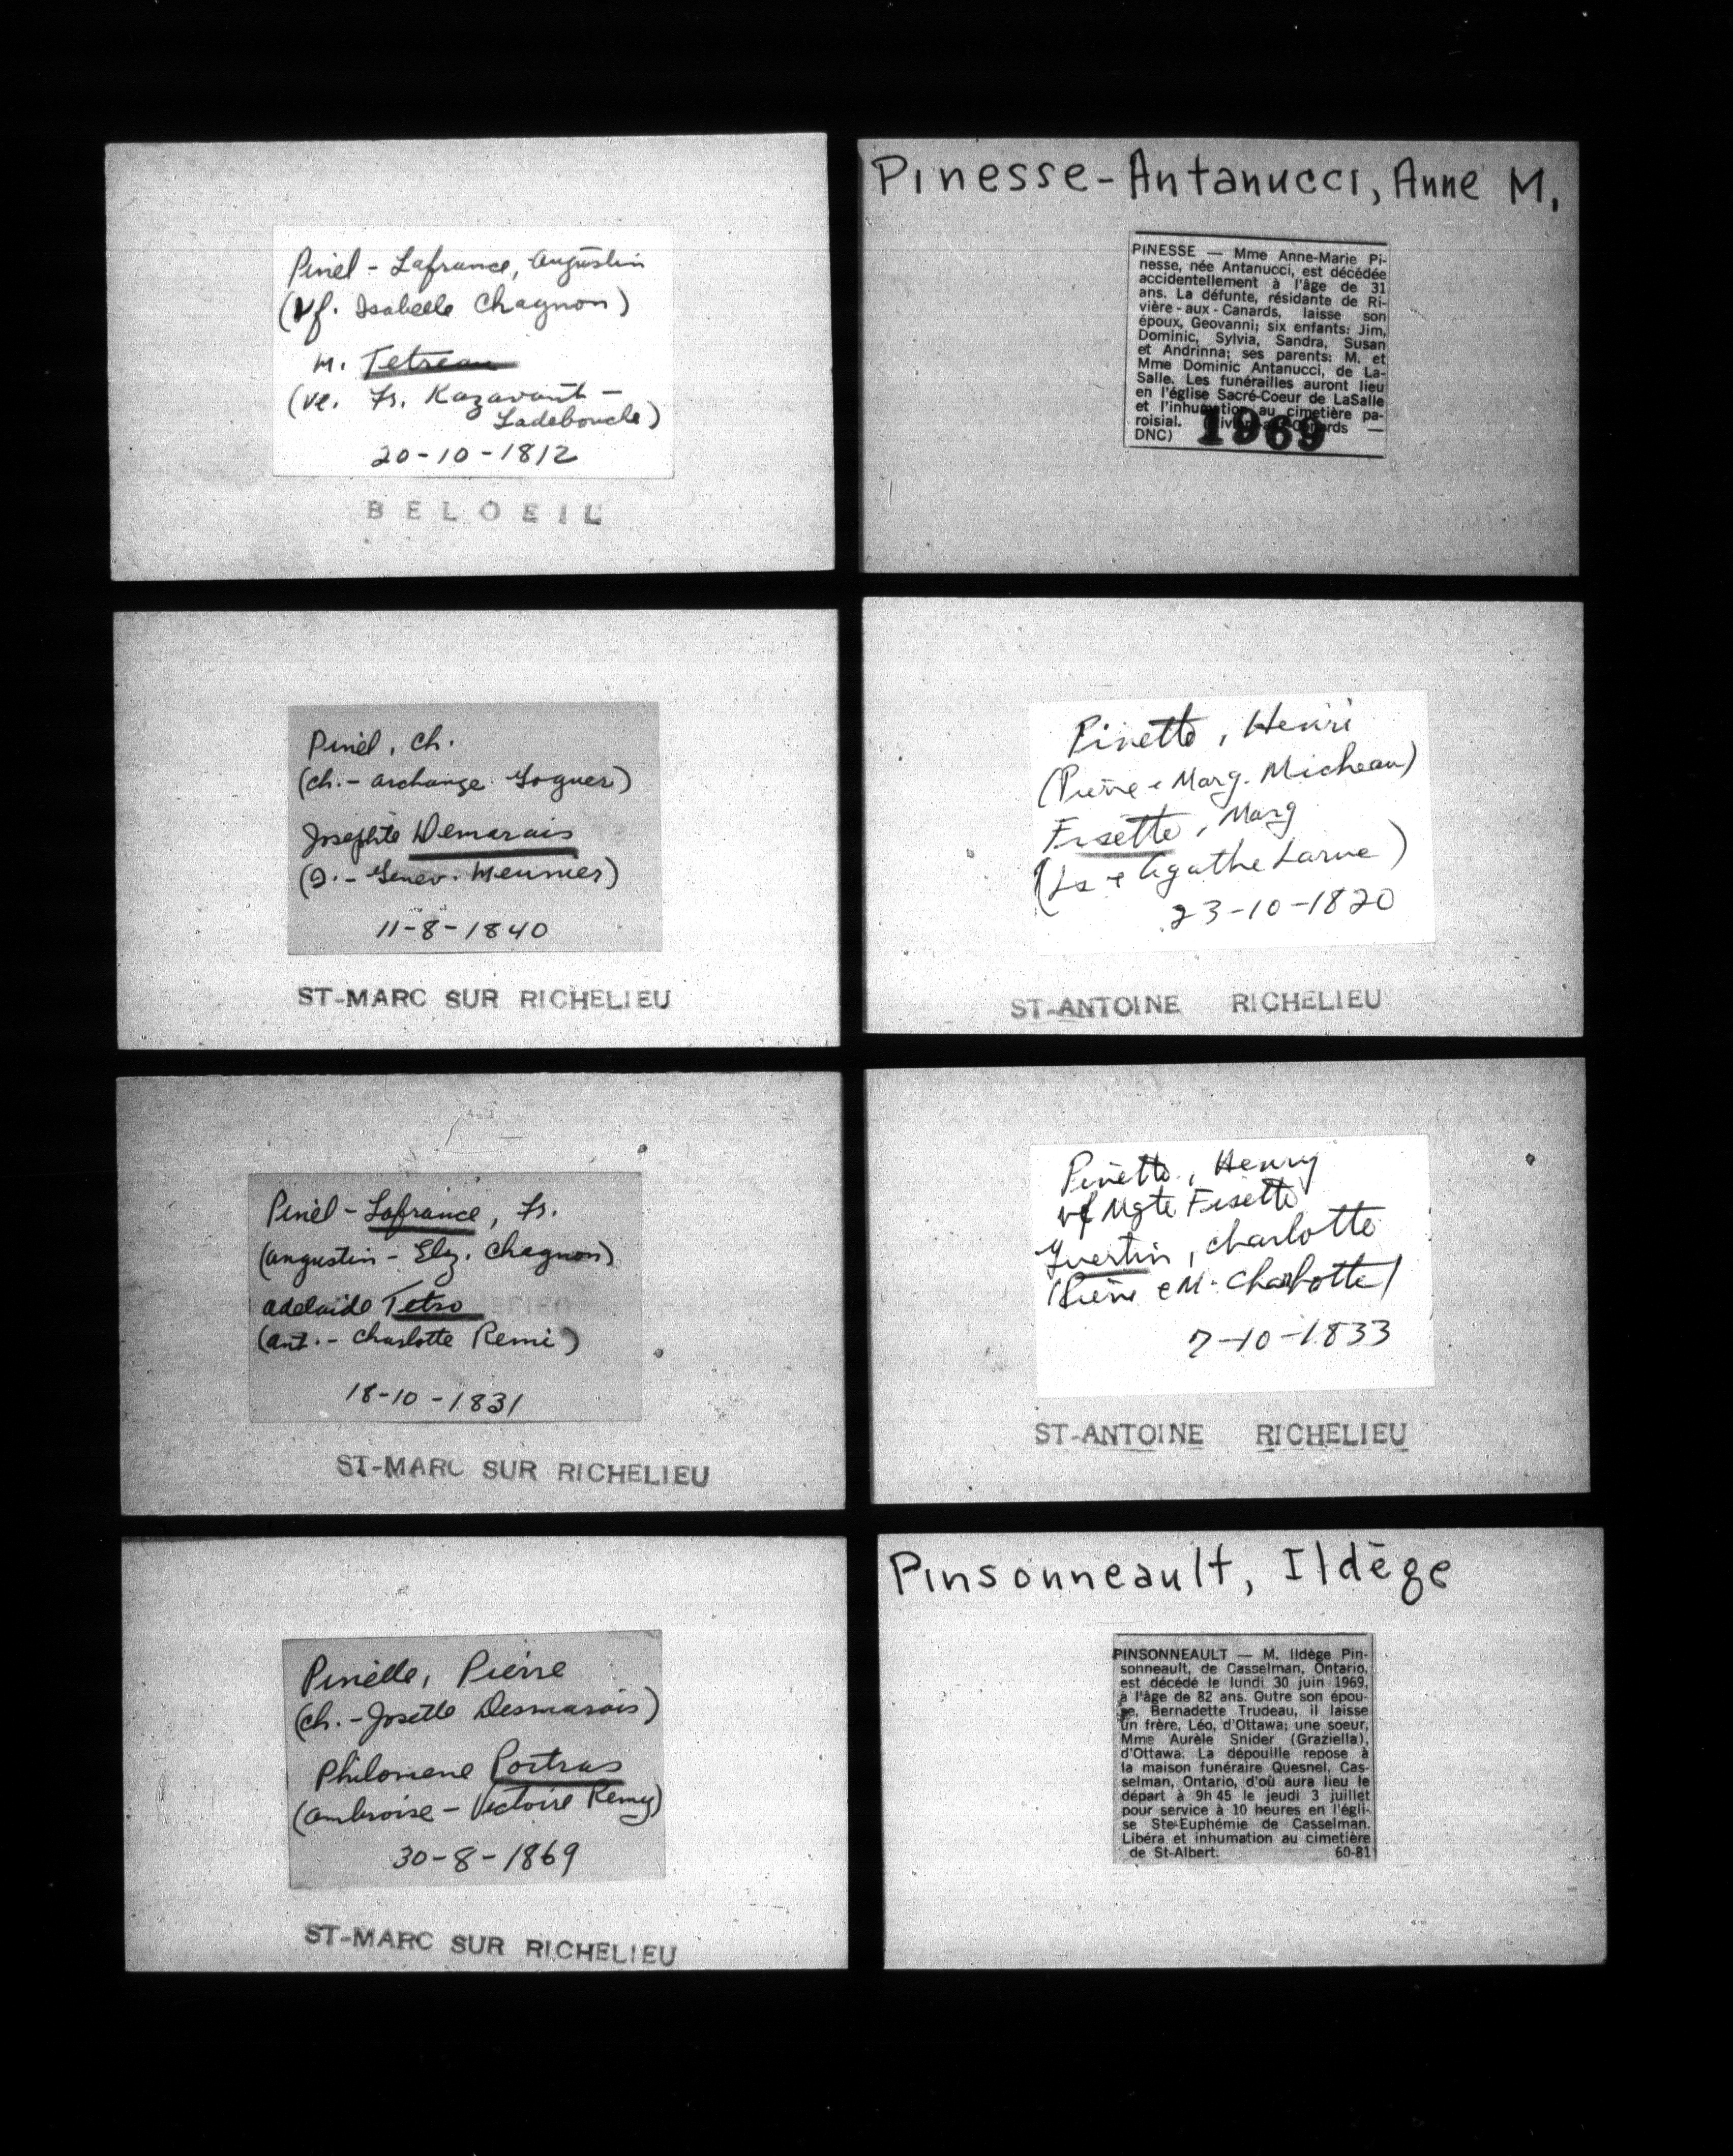 Pinel - Lafrance, Augustin
(Vf. Isabelle Chagnon)
M. Tetreau
(ve. Fs. Kazavant -
Ladebouche)
20-10-1812
BELOEIL
Pinel, Ch.
(Ch. - Archange Goguer)
Josephte Demarais
(J. - Genev. Meunier)
11-8-1840
ST-MARC SUR RICHELIEU
Pinel - Lafrance, Fs.
(Augustin - Elz. Chagnon)
Adelaide Tetro
(Ant. - Charlotte Remi)
18-10-1831
ST-MARC SUR RICHELIEU
Pinelle, Pierre
(Ch. - Josette Desmarais)
Philomene Poitras
(Ambroise - Victoire Remy)
30-8-1869
ST-MARC SUR RICHELIEU
Pinesse-Antanucci, Anne M.
PINESSE — Mme Anne-Marie Pi-
nesse, née Antanucci, est décédée
accidentellement à l'âge de 31
ans. La défunte, résidante de Ri-
vière-aux-Canards, laisse son
époux, Geovanni; six enfants: Jim,
Dominic, Sylvia, Sandra, Susan
et Andrinna; ses parents: M. et
Mme Dominic Antanucci, de La-
Salle. Les funérailles auront lieu
en l'église Sacré-Coeur de LaSalle
et l'inhumation au cimetière pa-
roisial. —
DNC)
1969
Pinette, Henri
(Pierre & Marg. Micheau)
Fisette, Marg
(Ls & Agathe Larue)
23-10-1820
ST-ANTOINE RICHELIEU
Pinette, Henry
vf Mgte Fisette
Guertin, Charlotte
(Pierre & M. Charlotte)
7-10-1833
ST-ANTOINE RICHELIEU
Pinsonneault, Ildège
PINSONNEAULT — M. Ildège Pin-
sonneault, de Casselman, Ontario,
est décédé le lundi 30 juin 1969,
à l'âge de 82 ans. Outre son épou-
se, Bernadette Trudeau, il laisse
un frère, Léo, d'Ottawa; une soeur,
Mme Aurèle Snider (Graziella),
d'Ottawa. La dépouille repose à
la maison funéraire Quesnel, Cas-
selman, Ontario, d'où aura lieu le
départ à 9h 45 le jeudi 3 juillet
pour service à 10 heures en l'égli-
se Ste-Euphémie de Casselman.
Libéra et inhumation au cimetière
de St-Albert. 60-81